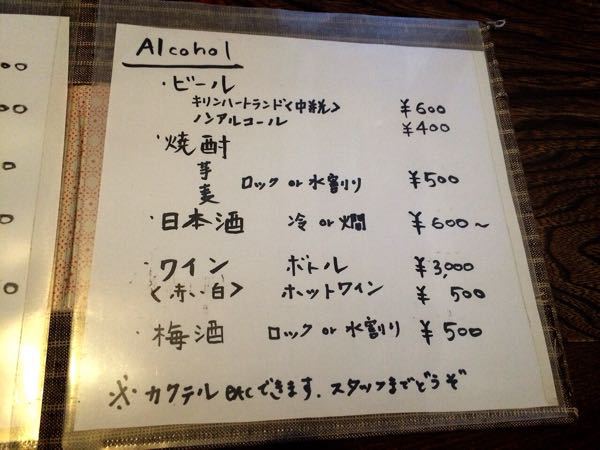 Alcohol
・ビール
キリンハートランド〈中瓶〉 ¥600
ノンアルコール ¥400
・焼酎
芋
麦 ロック or 水割り ¥500
・日本酒 冷 or 燗 ¥600～
・ワイン ボトル ¥3,000
〈赤・白〉 ホットワイン ¥500
・梅酒 ロック or 水割り ¥500
※ カクテル etc できます。スタッフまでどうぞ
00
00
0
0
0